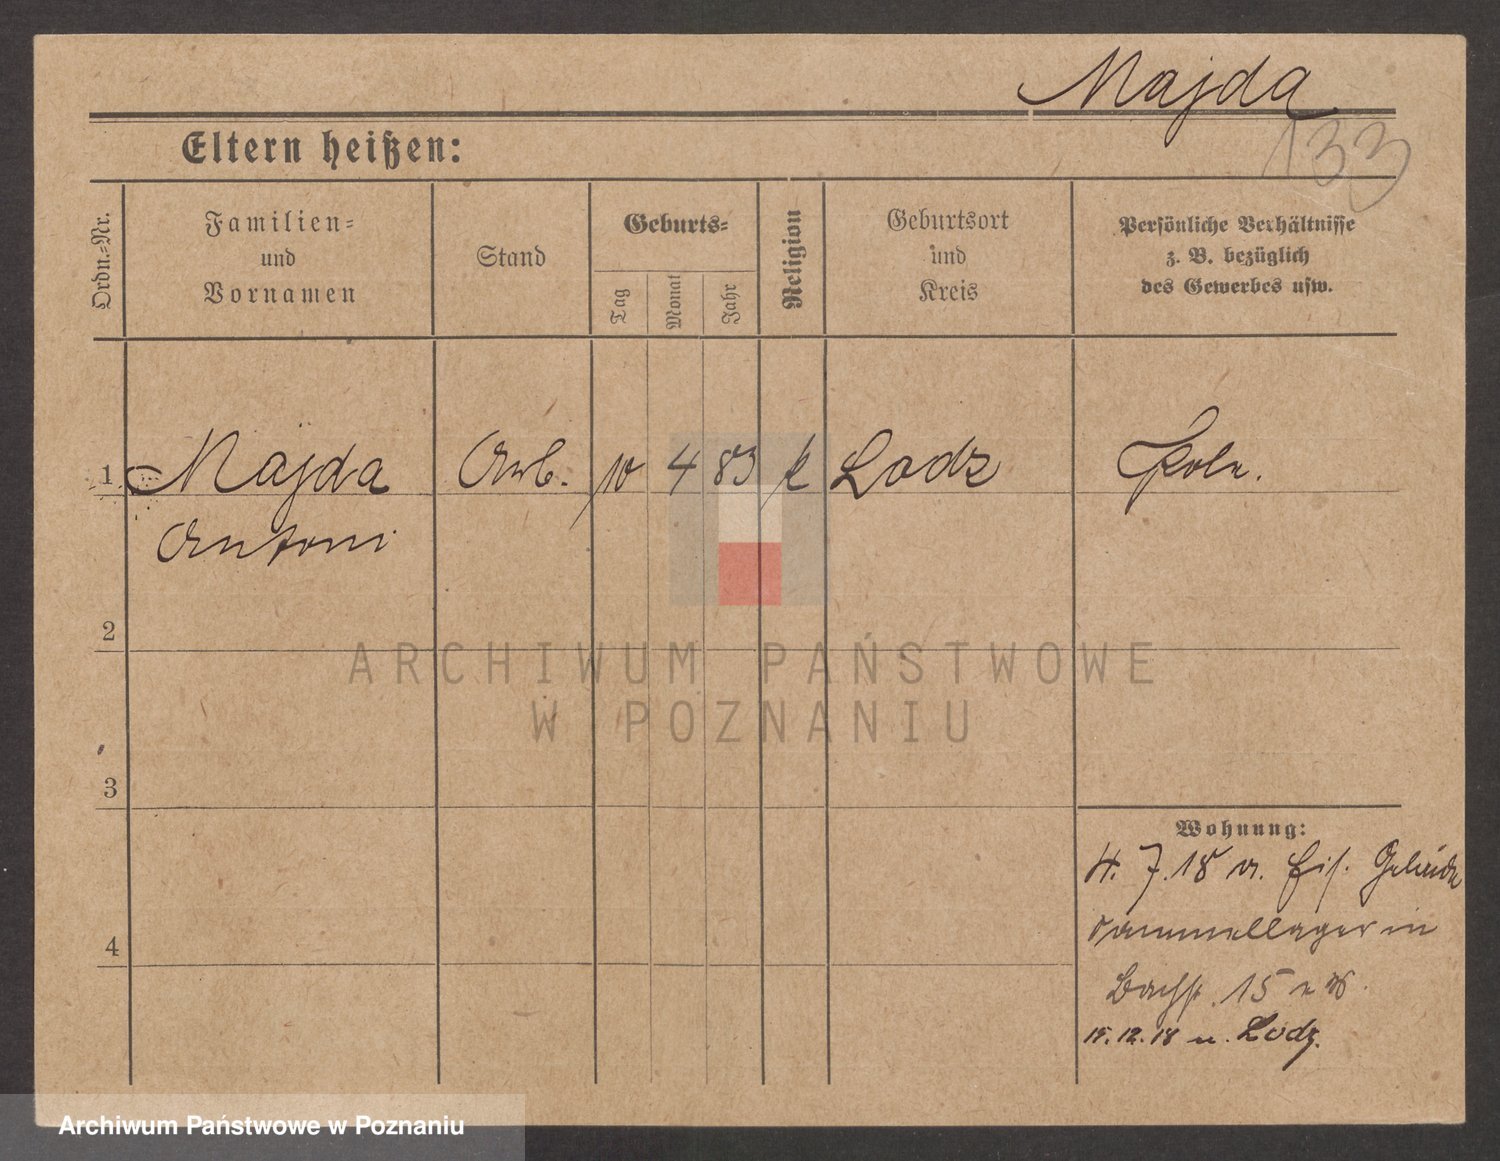 Majda
133
Eltern heißen:
Ordn.-Nr.
Familien-
und
Vornamen
Stand
Geburts-
Tag
Monat
Jahr
Religion
Geburtsort
und
Kreis
Persönliche Verhältnisse
z. B. bezüglich
des Gewerbes usw.
1 Majda Arb. 10 4 83 k Lodz Poln.
Antoni
2
ARCHIWUM PAŃSTWOWE
W POZNANIU
3
Wohnung:
4. 7. 18 v.
sammellager in
4
Bachstr. 15
15. 12. 18 n. Lodz.
Archiwum Państwowe w Poznaniu